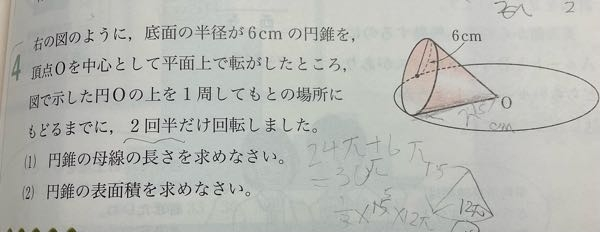 4
右の図のように，底面の半径が6cmの円錐を，
頂点Oを中心として平面上で転がしたところ，
図で示した円Oの上を1周してもとの場所に
もどるまでに，2回半だけ回転しました。
(1) 円錐の母線の長さを求めなさい。
(2) 円錐の表面積を求めなさい。
6cm
O
cm
24π+6π
=30π
15
12π